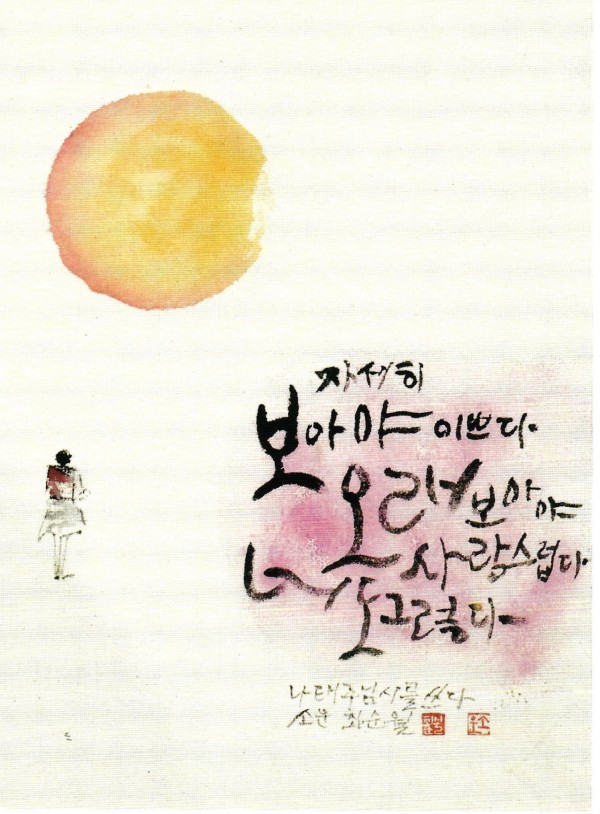 자세히
보아야 이쁘다.
오래 보아야
사랑스럽다
너도 그렇다-
나태주님 시를 쓰다
소운 최순월